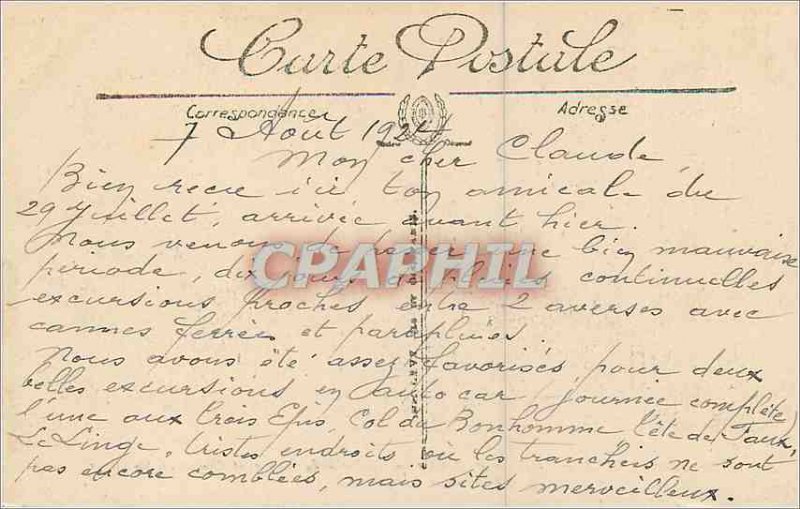 Carte Postale
Correspondance Adresse
7 Aout 192
Mon cher Claude
Bien reçu ici ton amicale du
29 Juillet, arrivée avant hier.
Nous venons de passer une bien mauvaise
période, dix jours de pluies continuelles
excursions proches entre 2 averses avec
cannes ferrées et parapluies.
Nous avons été assez favorisés pour deux
belles excursions en auto car (journée complète)
l'une aux trois Epis, Col du Bonhomme
Le Linge, tristes endroits où les tranchées ne sont
pas encore comblées, mais sites merveilleux.
CPAPHIL